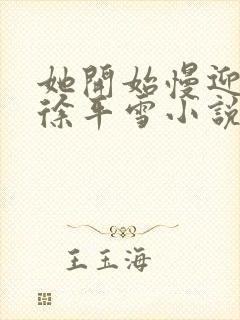 她開始慢迎
徐平雪小說
王玉海